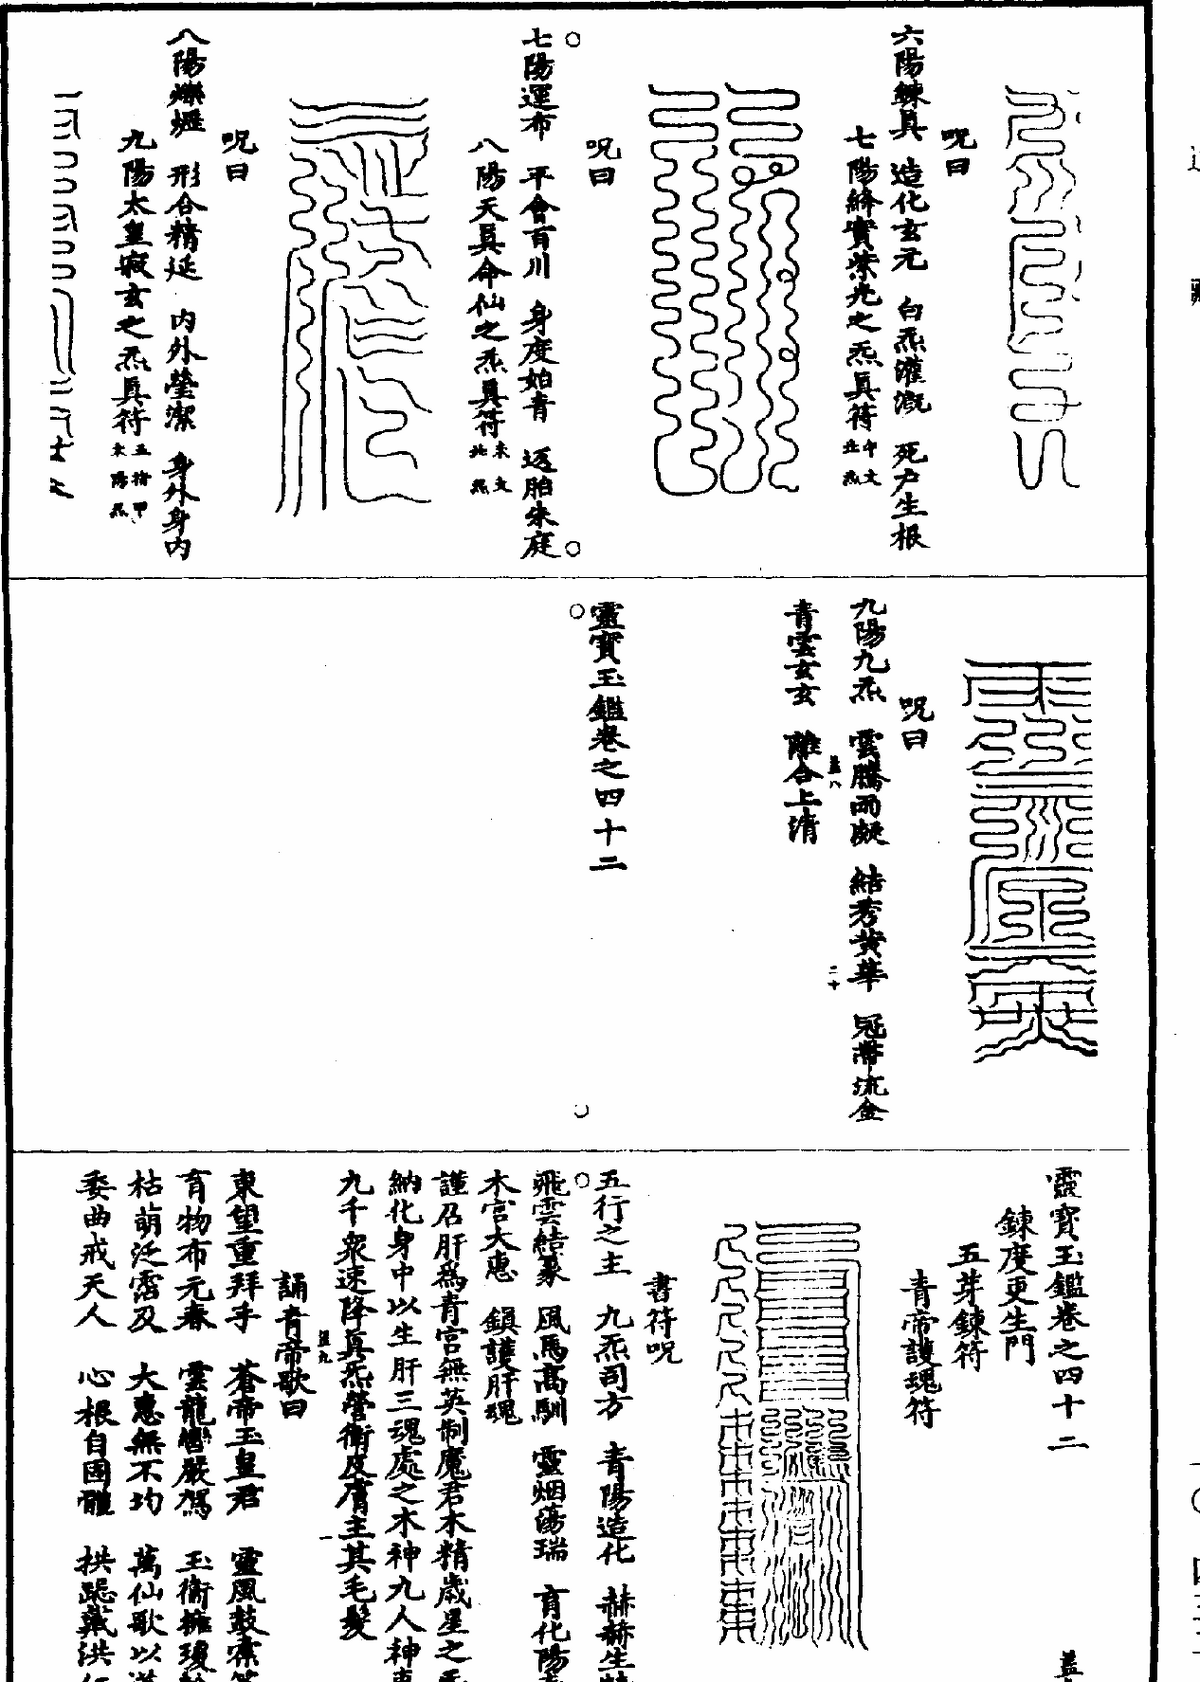 呪曰
六陽鍊真　造化玄元　白炁灌溉　死戶生根
七陽絳實紫光之炁真符 午文 北炁
呪曰
七陽運布　平會百川　身度始青　返胎朱庭
八陽天真命仙之炁真符 末文 北炁
呪曰
八陽　形合精延　內外瑩潔　身外身內
九陽太皇寂玄之炁真符
呪曰
九陽九炁　雲騰而凝　結秀黃華　冠帶流金
青雲玄玄　離合上清
靈寶玉鑑卷之四十二
靈寶玉鑑卷之四十二
鍊度更生門
五芽鍊符
青帝護魂符
書符呪
五行之主　九炁司方　青陽造化　赫赫生
飛雲結篆　風馬高馴　靈烟蕩瑞　育化陽
木宮大惠　鎮護肝魂
謹召肝為青宮無英制魔君木精歲星之炁
納化身中以生肝三魂處之木神九人神
九千眾速降真炁營衛皮膚主其毛髮
誦青帝歌曰
東望重拜手　蒼帝玉皇君　靈風鼓
育物布元春　雲龍響嚴駕　玉衛擁瓊
枯萌泛霑及　大惠無不均　萬仙歌以
委曲戒天人　心根自固體　拱跽戴洪